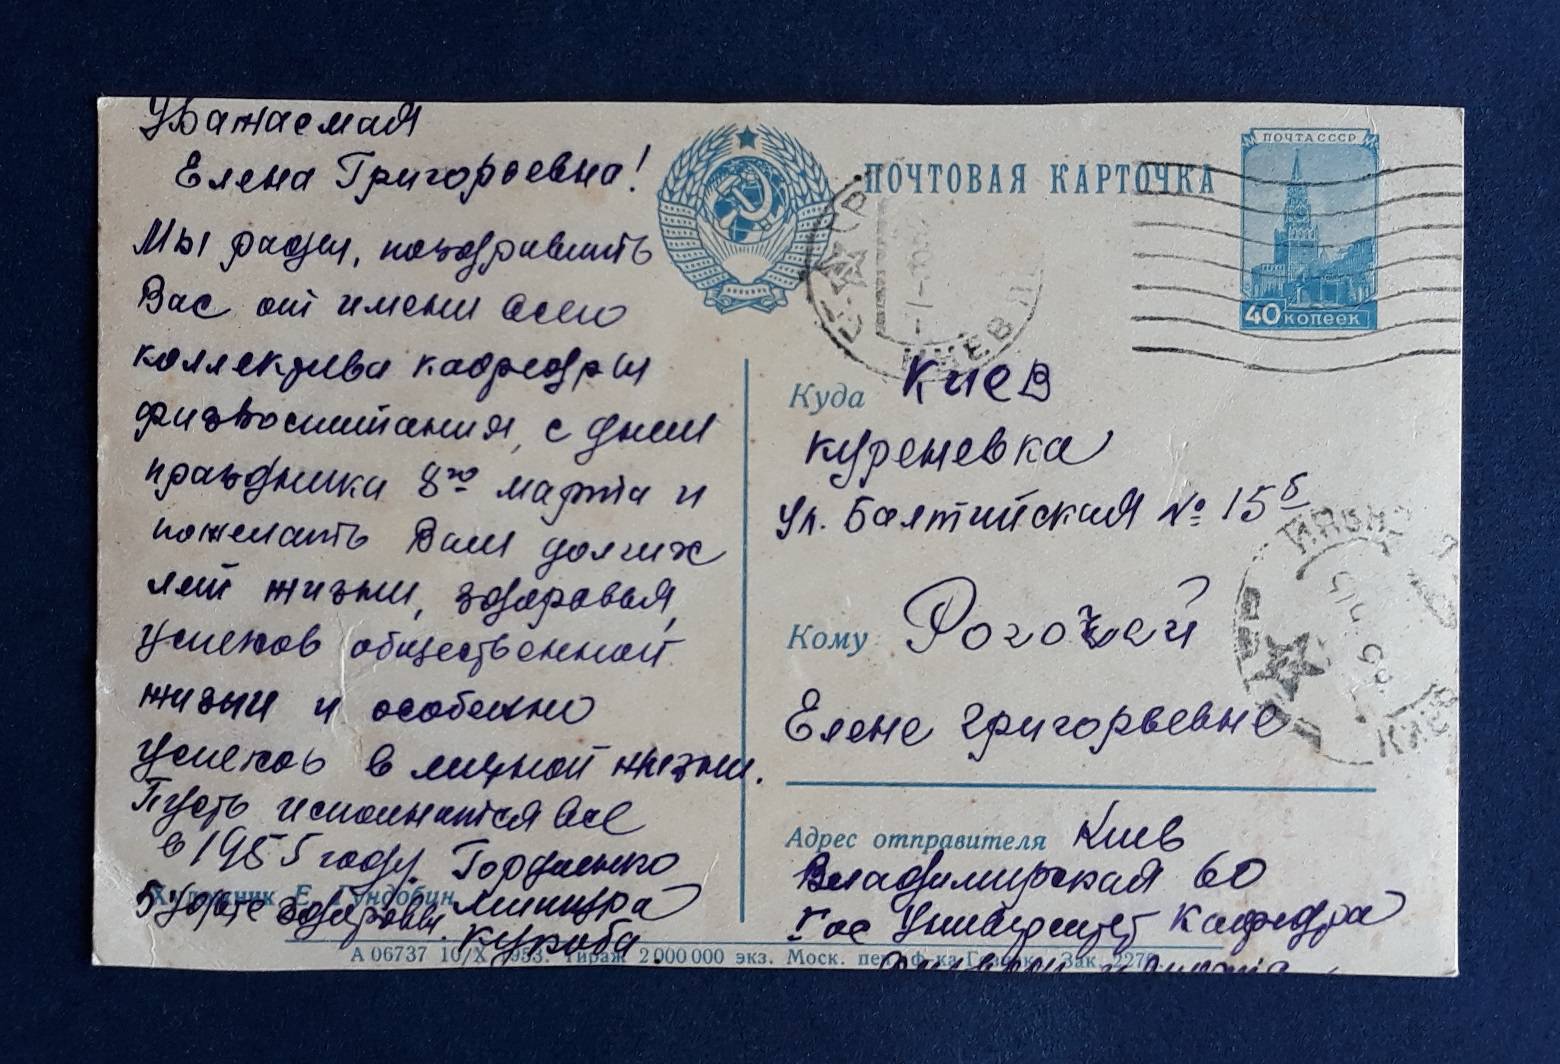 Уважаемая
Елена Григорьевна!
Мы рады, поздравить
Вас от имени всего
коллектива кафедры
физвоспитания, с днем
праздника 8го марта и
пожелать Вам долгих
лет жизни, здоровья,
успехов общественной
жизни и особенно
успехов в личной жизни.
Пусть исполнятся все
в 1955 году. Гордиенко
Будьте здоровы.
Художник Е. Гундобин
А 06737 10/X 1953. Тираж 2 000 000 экз. Моск. печ. ф-ка Гознака. Зак. 227
ПОЧТОВАЯ КАРТОЧКА
ПОЧТА СССР
40 КОПЕЕК
КИЕВ
Куда Киев
Куреневка
ул. Балтийская № 15б
Кому Рогожей
Елене Григорьевне
КИЕВ
Адрес отправителя Киев
Владимирская 60
Гос Университет Кафедра